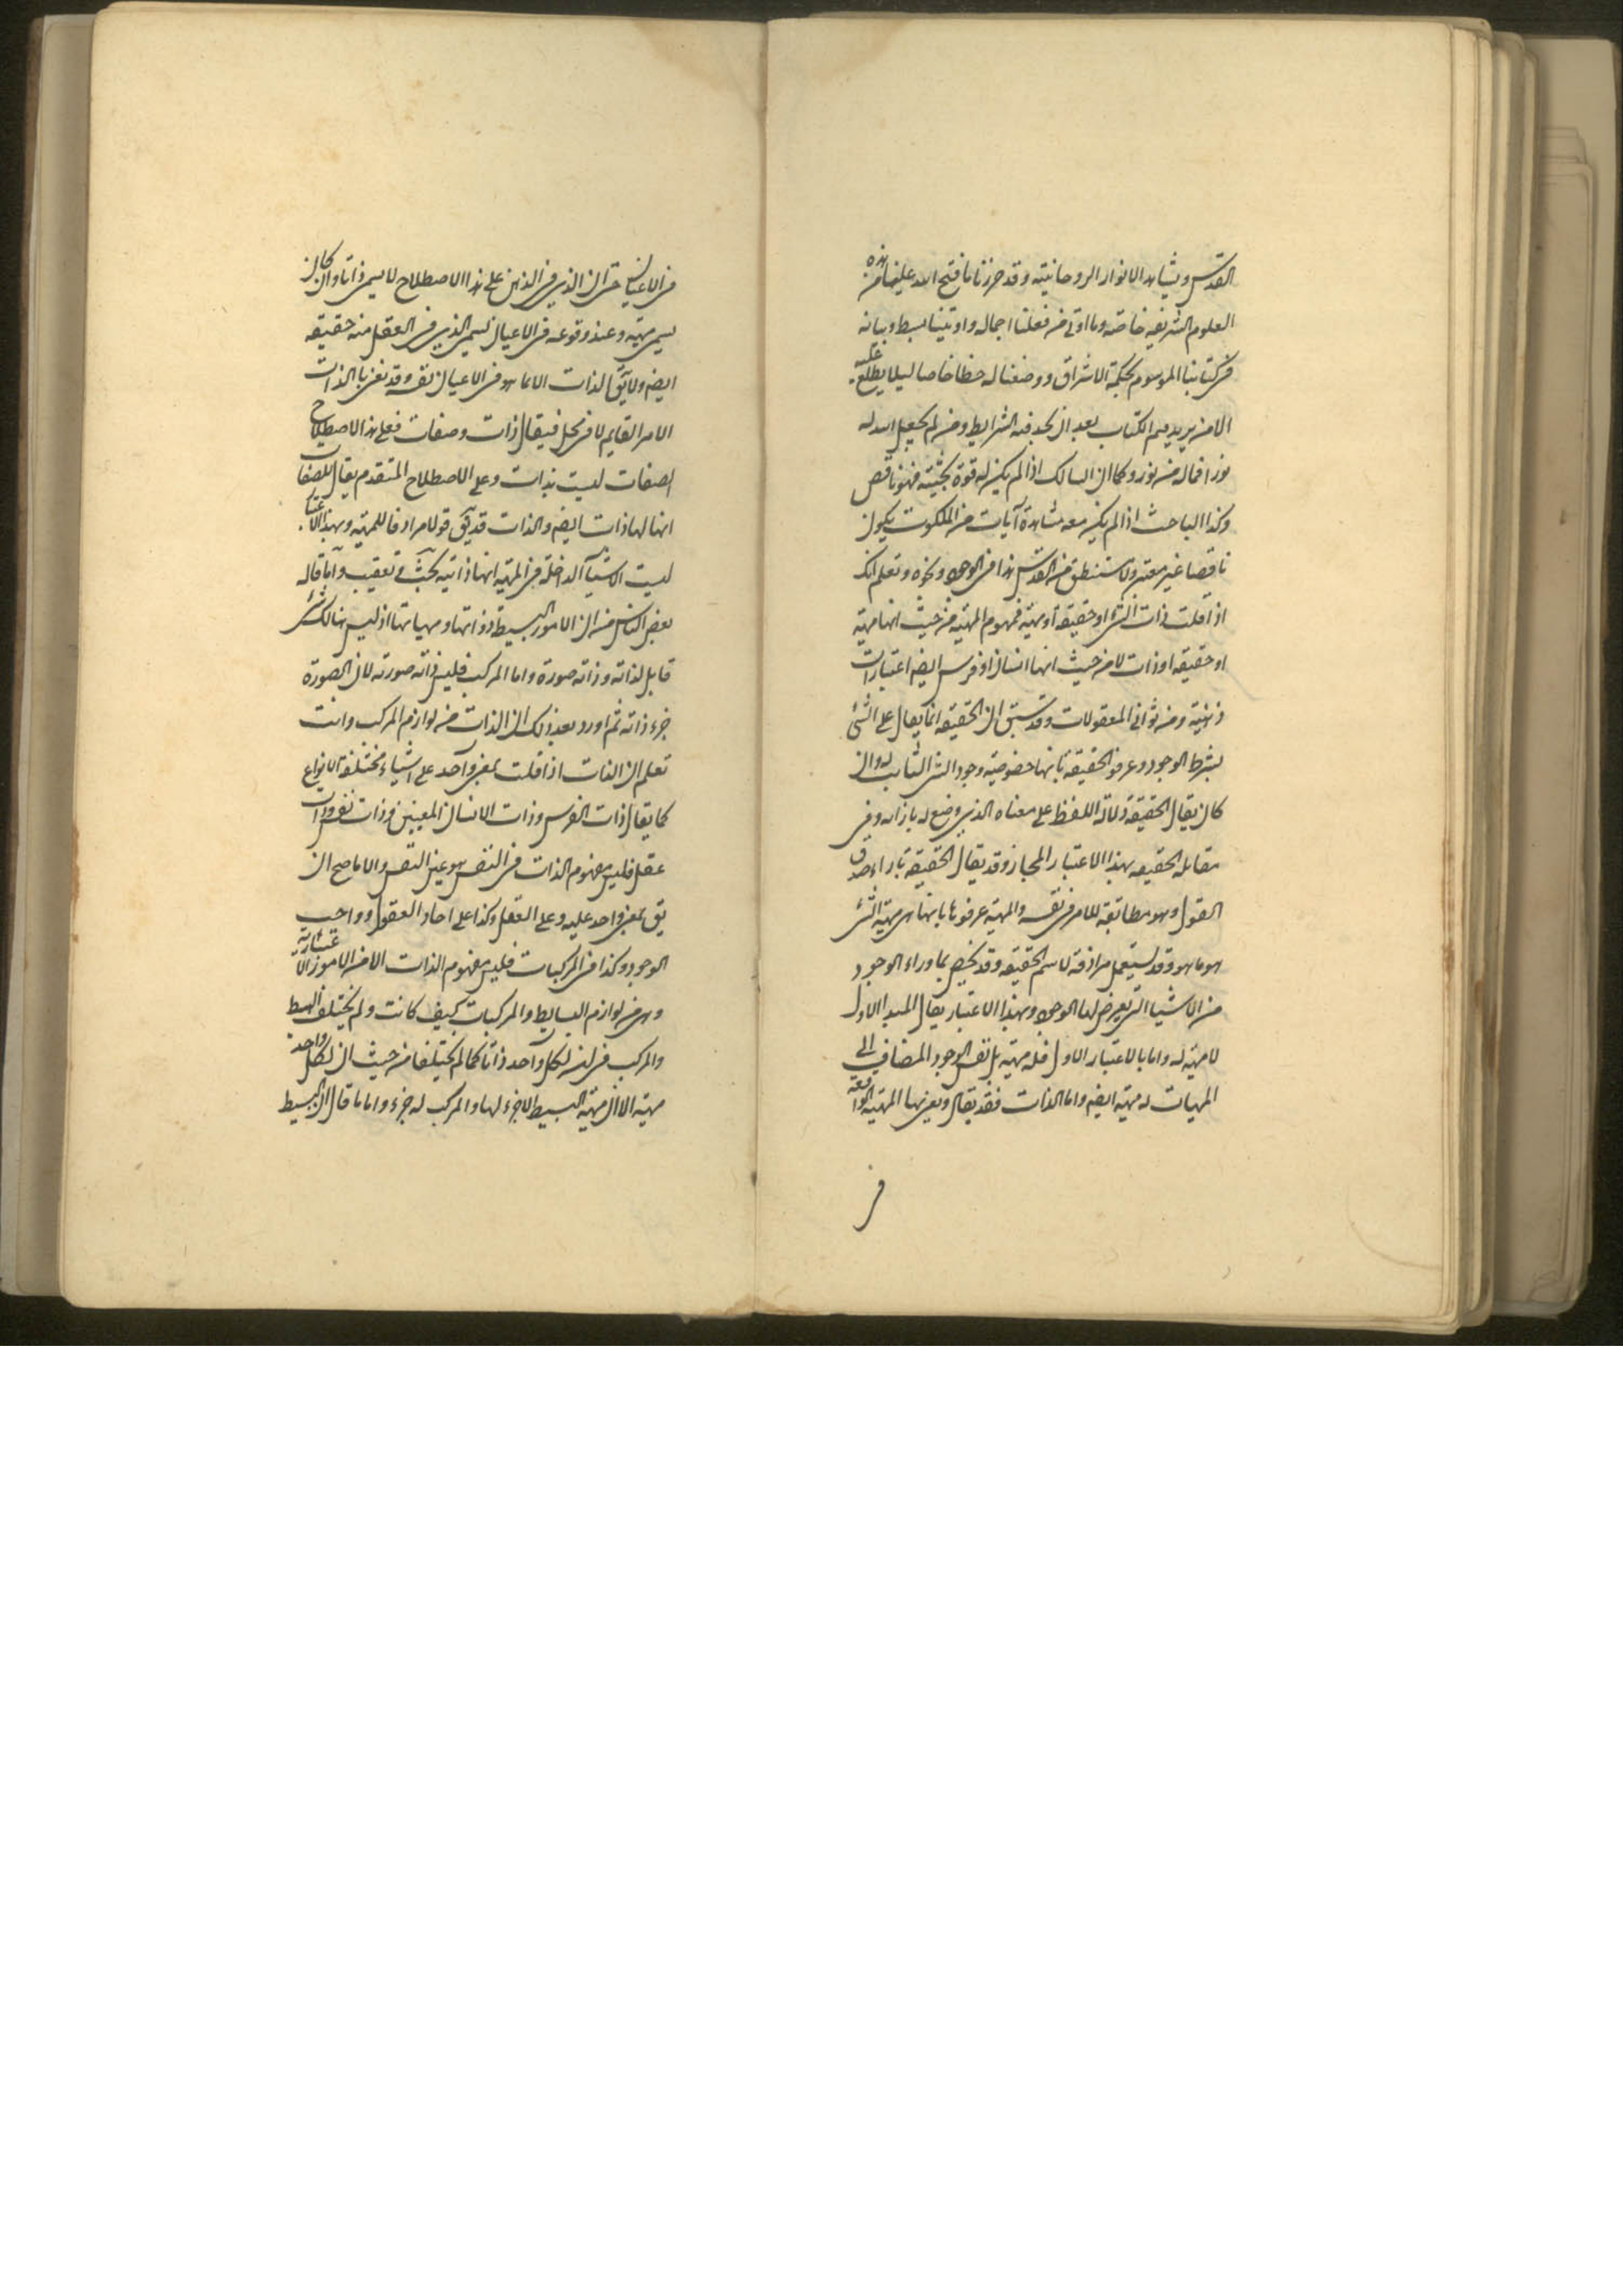 القدس ويشاهد الانوار الروحانيته وقد حرزنا ما فتح الله علينا من هذه
العلوم الشريفه خاصه وما اوتى من فعلنا اجماله واوتينا بسط وبيانه
فى كتابنا الموسوم بحكمة الاشراق ووضعنا له خطا خاصا ليلا يطلع عليه
الا من يريد فهم الكتاب بعد ان يجد فيه الشرايط ومن لم يجعل الله له
نورا فما له من نور وكما ان السالك اذا لم يكن له قوة بحثيته فهو ناقص
وكذا الباحث اذا لم يكن معه مشاهدة آيات من الملكوت يكون
ناقصا غير معتبر ولا مستنطق من القدس هذا فى الوجود ونحوه وتعلم انك
اذا قلت ذات الشئ او حقيقة او مهيته فمفهوم المهيته من حيث انها مهيته
او حقيقه او ذات لا من حيث انها انسان او فرس ايضه اعتبارات
ذهنيته ومن ثوانى المعقولات وقد سبق ان الحقيقه انما يقال على الشئ
بشرط الوجود وعرفو الحقيقة بانها خصوصيته وجود الشئ الثابت له وان
كان يقال الحقيقة لدلالة اللفظ على معناه الذى وضع له بازائه وفى
مقابله الحقيقه بهذا الاعتبار المجاز وقد يقال الحقيقة بازاء صدق
القول وهو مطابقة للامر فى نفسه والمهيته عرفوها بانها هى مهيته الشئ
هو ما هو وقد يستعمل مرادفة لاسم الحقيقه وقد يخص بما وراء الوجود
من الاشيا التى يعرض لها الوجود وبهذا الاعتبار يقال المبدا الاول
لا مهيته له واما بالاعتبار الاول فله مهيته بل نفس الوجود المضاف الى
المهيات له مهيته ايضه واما الذات فقد يقال ويعنى بها المهيته الواقعة
فى
فى الاعيان حتى ان الذى فى الذهن على هذا الاصطلاح لا يسمى ذاتا وان كان
يسمى مهيته وعند وقوعه فى الاعيان يسمى الذى فى العقل منه حقيقه
ايضه ولا يق الذات الا لما هو فى الاعيان نفسه وقد يعنى بالذات
الامر القايم لا فى محل فيقال ذات وصفات فعلى هذا الاصطلاح
الصفات ليست بذات وعلى الاصطلاح المتقدم يقال للصفات
انها لها ذات ايضه والذات قد يق قولا مرادفا للمهيته وبهذا الاعتبار
ليست الاشيا الداخلة فى المهيته انها ذاتيه بحث وتعقيب واما قاله
بعض الناس من ان الامور البسيطة ذواتها ومهياتها اذ ليس هنالك شئ
قابل لذاته وذاته صورة واما المركب فليس ذاته صورته لان الصورة
جزء ذاته ثم اورد بعد ذلك ان الذات من لوازم المركب وانت
تعلم ان الذات اذا قلت بمعنى واحد على اشياء مختلفة الانواع
كما يقال ذات الفرس وذات الانسان المعينين وذات نفس وذات
عقل فليس مفهوم الذات فى النفس هو عين النفس والا ما صح ان
يق بمعنى واحد عليه وعلى العقل وكذا على احاد العقول وواجب
الوجود وكذا فى المركبات فليس مفهوم الذات الا من الامور الاعتبارية
وهى من لوازم البسايط والمركبات كيف كانت ولم يختلف البسيط
والمركب فى ان لكل واحد ذاتا كما لم يختلفا من حيث ان لكل واحد
مهيته الا ان مهيته البسيط لا جزء لها والمركب له جزء واما ما قال ان البسيط